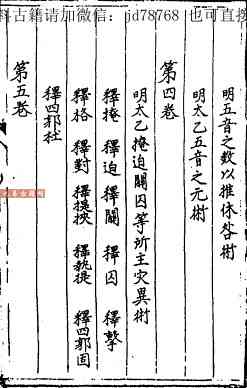 料古籍请加微信：jd78768 也可直接
明五音之数以推休咎術
明太乙五音之元術
第四卷
明太乙掩迫關囚等所主灾異術
釋掩 釋迫 釋關 釋囚 釋擊
釋格 釋對 釋提挾 釋執提 釋四郭固
釋四郭杜
第五卷